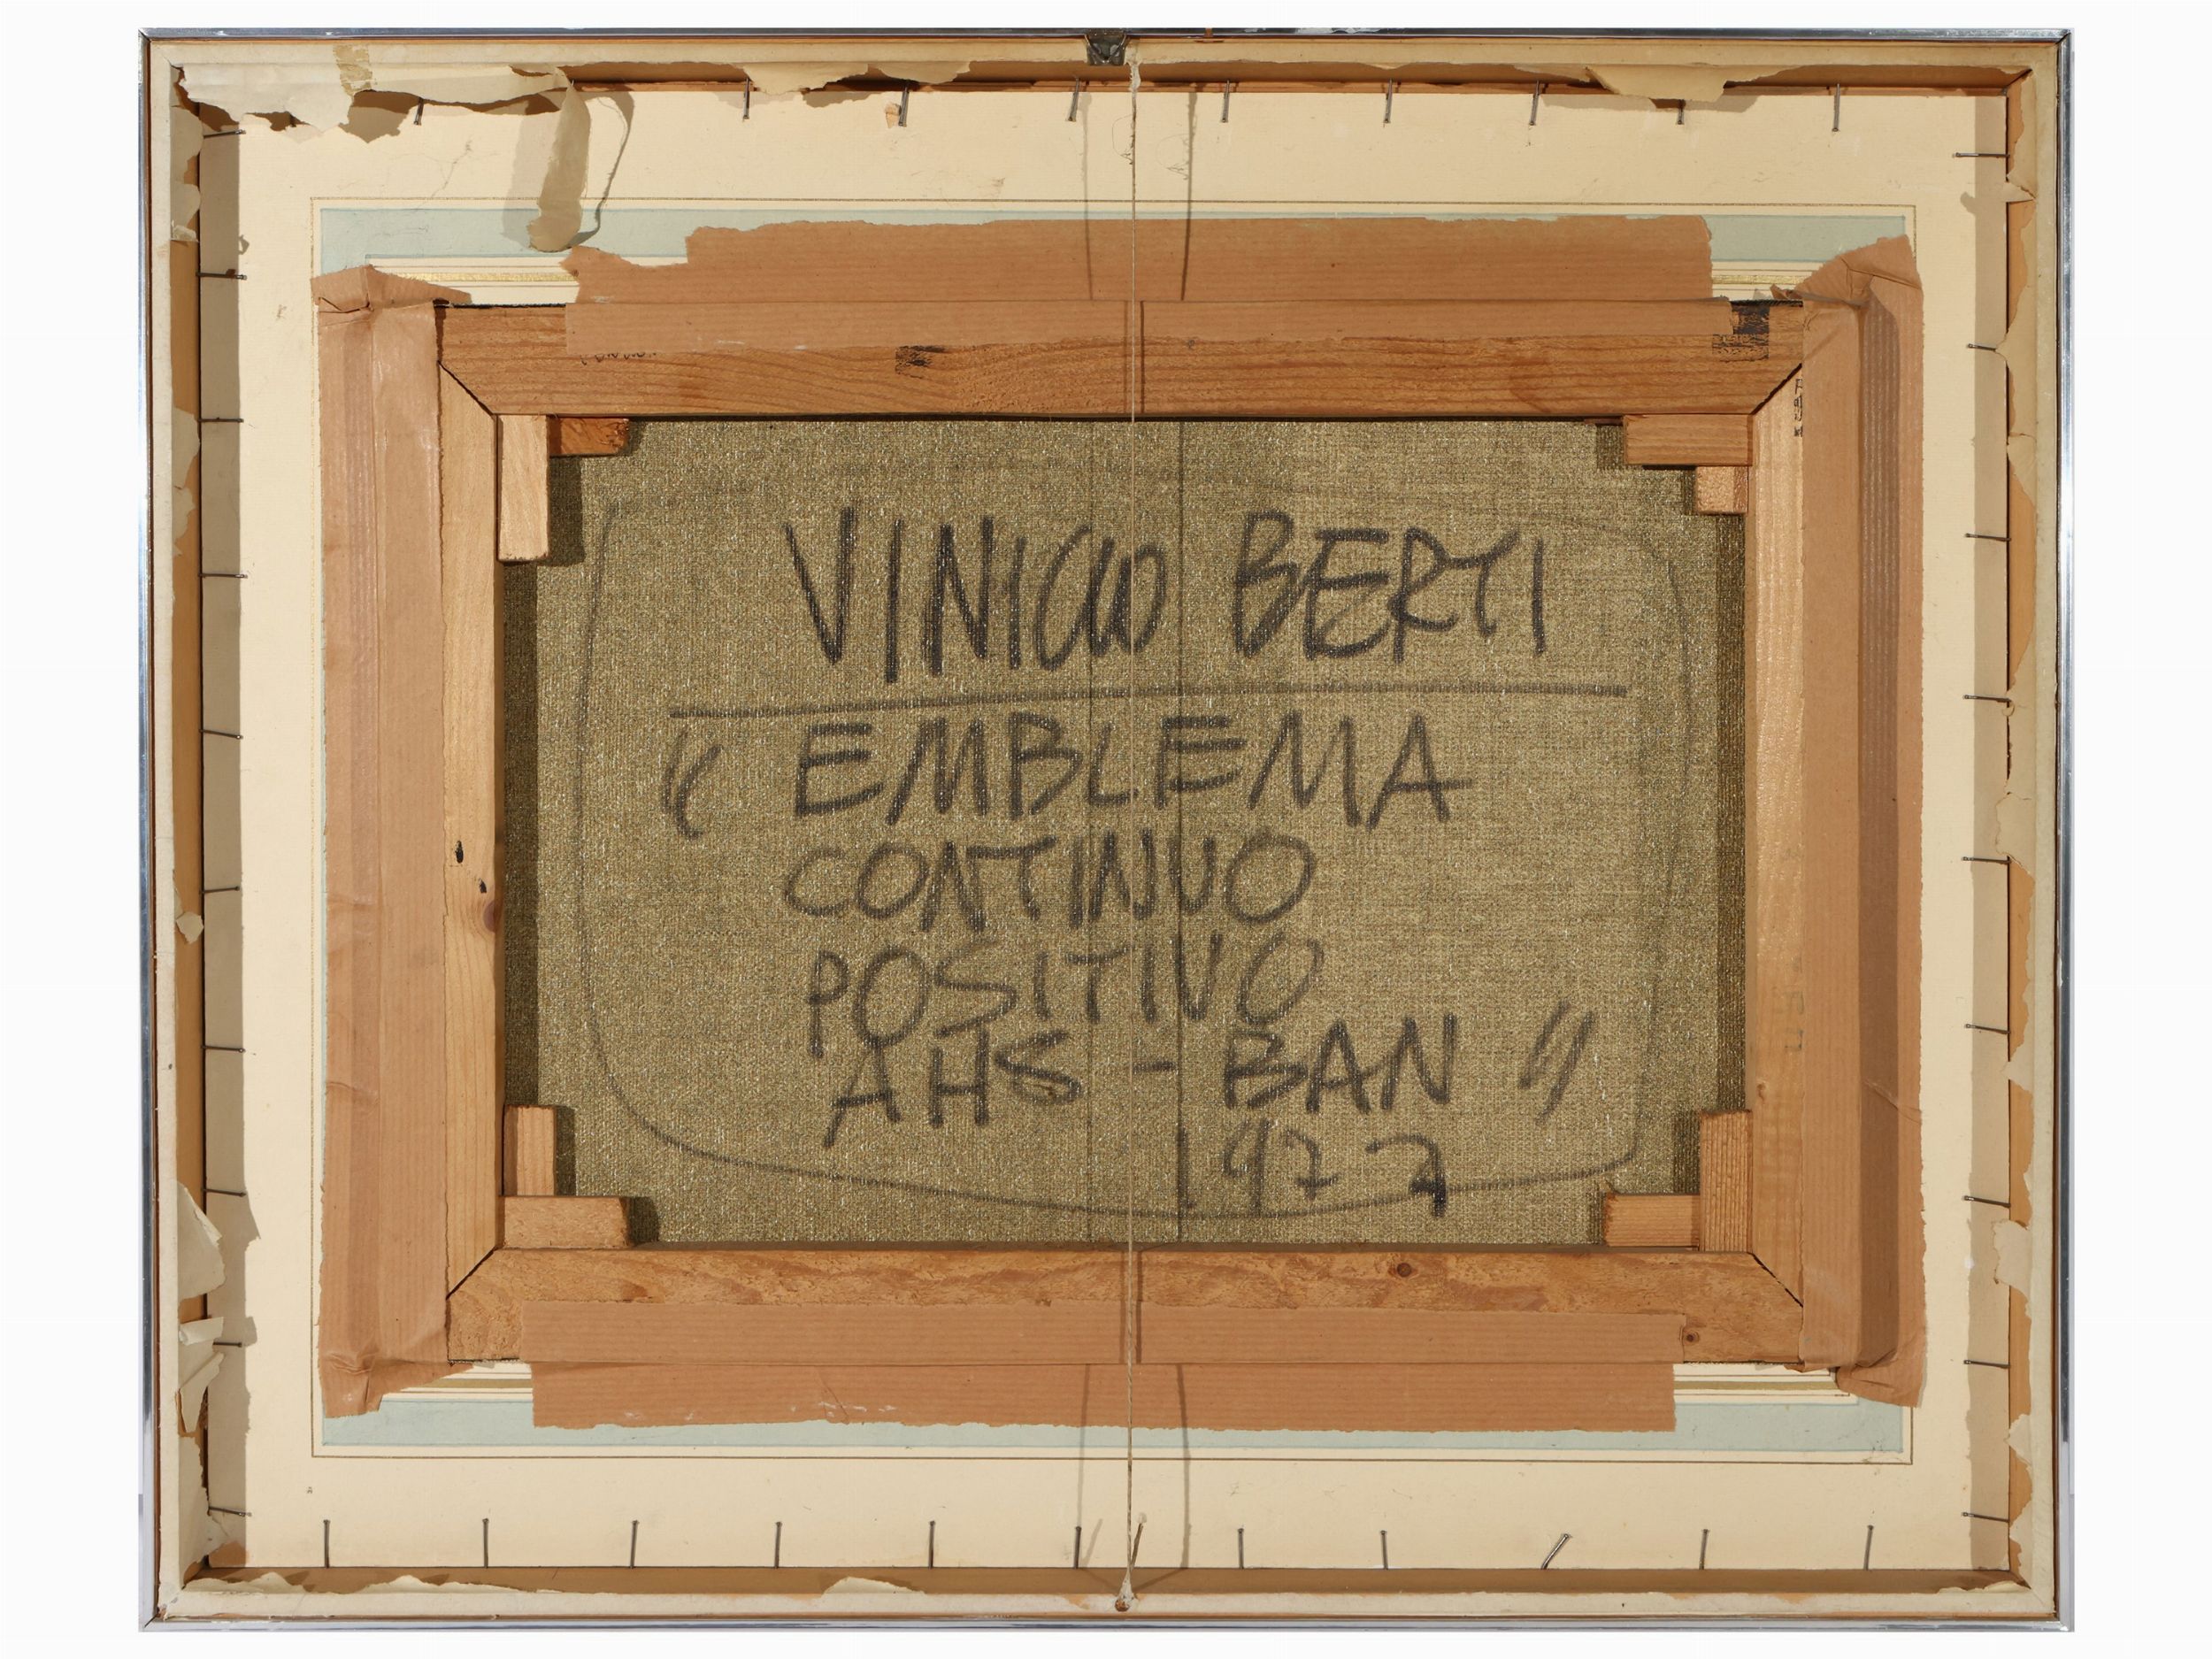 VINICIO BERTI
“ EMBLEMA
CONTINUO
POSITIVO
AHS - BAN ”
1977